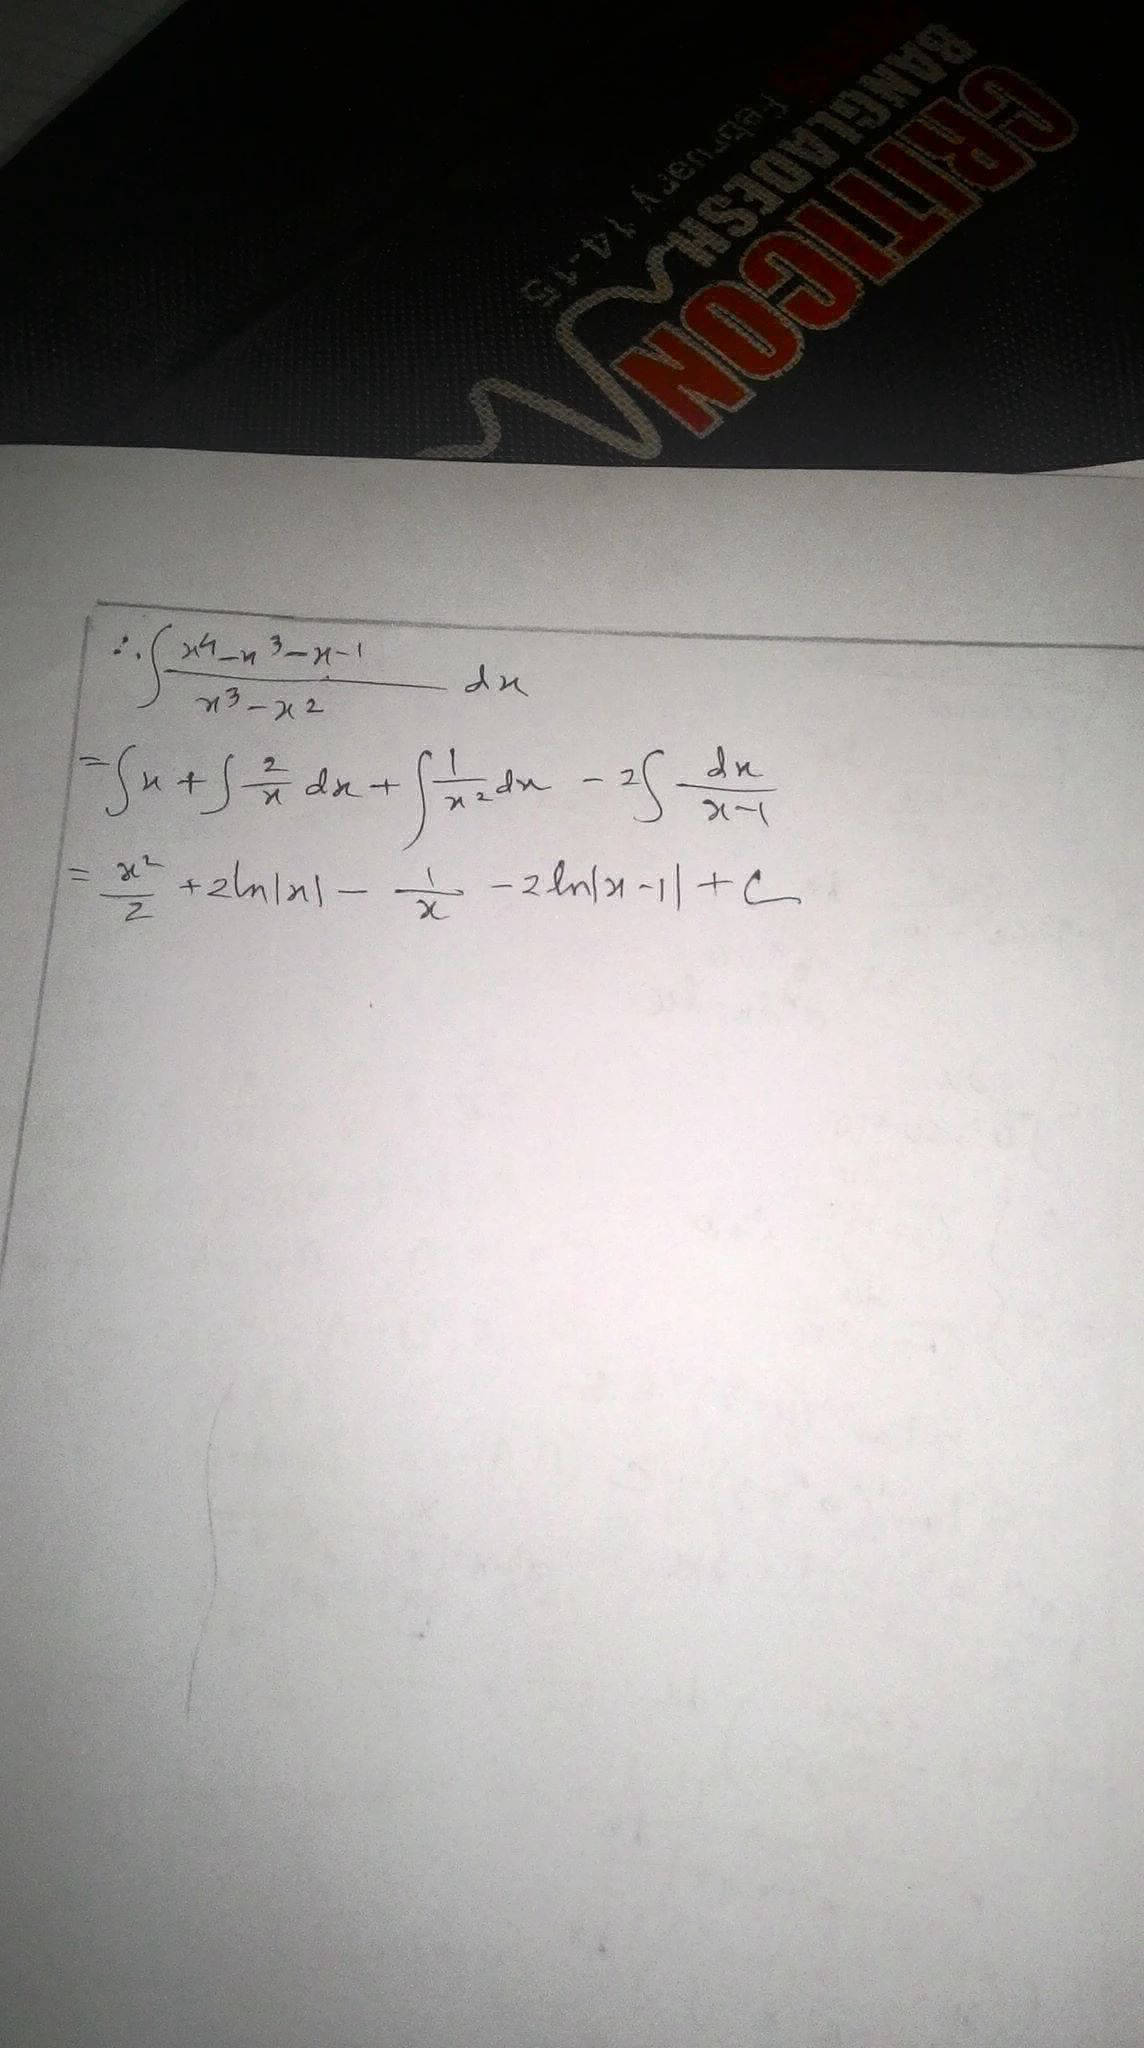 CRITICON
BANGLADESH
February 14-15
∴ ∫ (x⁴-x³-x-1)/(x³-x²) dx
= ∫x + ∫ 2/x dx + ∫ 1/x² dx - 2∫ dx/(x-1)
= x²/2 + 2ln|x| - 1/x - 2ln|x-1| + C